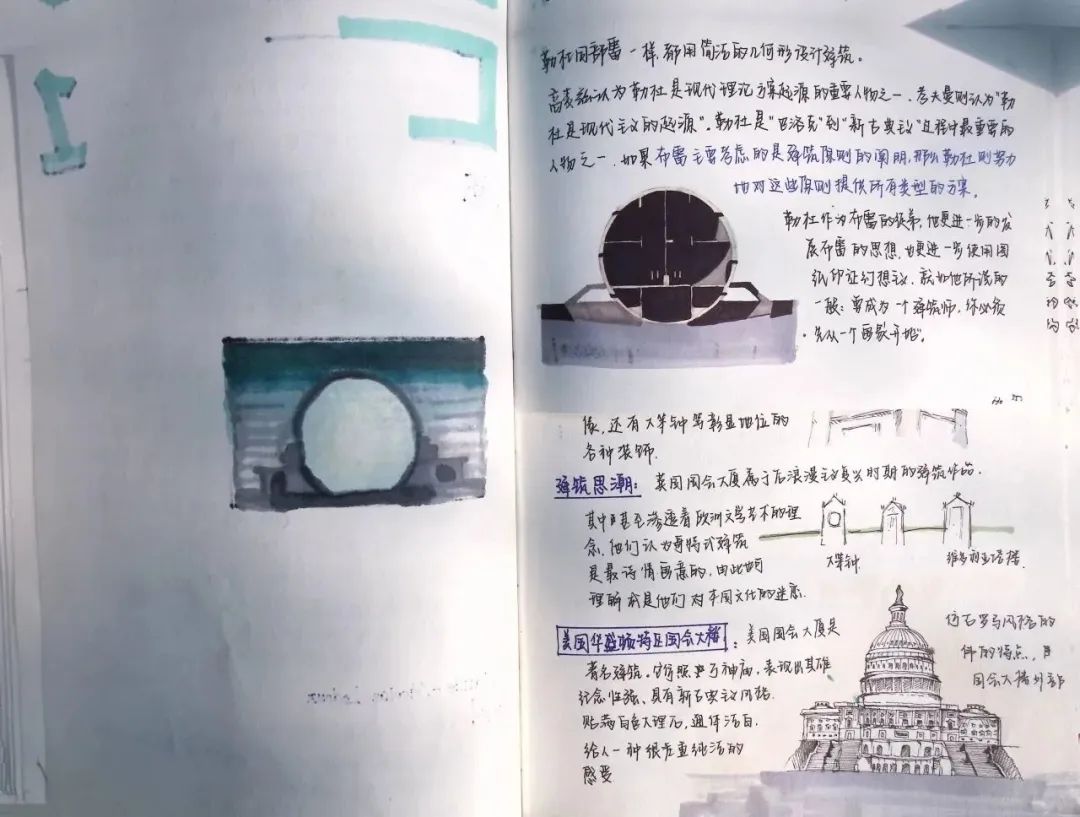 勒杜同部雷一样,都用简洁的几何形设计建筑。
认为勒杜是现代理论方案起源的重要人物之一.考夫曼则认为"勒
杜是现代主义的起源".勒杜是"巴洛克"到"新古典主义"过程中最重要的
人物之一.如果布雷主要考虑的是建筑原则的阐明,那么勒杜则努力
地对这些原则提供所有类型的方案。
勒杜作为布雷的徒弟,他更进一步的发
展布雷的思想,也更进一步使用图
纸印证幻想主义,就如他所说的
一般:要成为一个建筑师,你必须
先从一个画家开始。
像,还有大笨钟等彰显地位的
各种装饰.
建筑思潮: 英国国会大厦属于后浪漫主义复兴时期的建筑作品.
其中甚至渗透着欧洲文学艺术的理
念,他们认为哥特式建筑
是最诗情画意的,由此也可
理解为是他们对本国文化的迷恋.
大笨钟
维多利亚塔楼.
美国华盛顿特区国会大楼: 美国国会大厦是
著名建筑.仿照万神庙,表现出其雄
纪念性强、具有新古典主义风格.
贴满白色大理石,通体洁白.
给人一种很庄重纯洁的
感受
仿古罗马风格的
件的特点,且
国会大楼外部